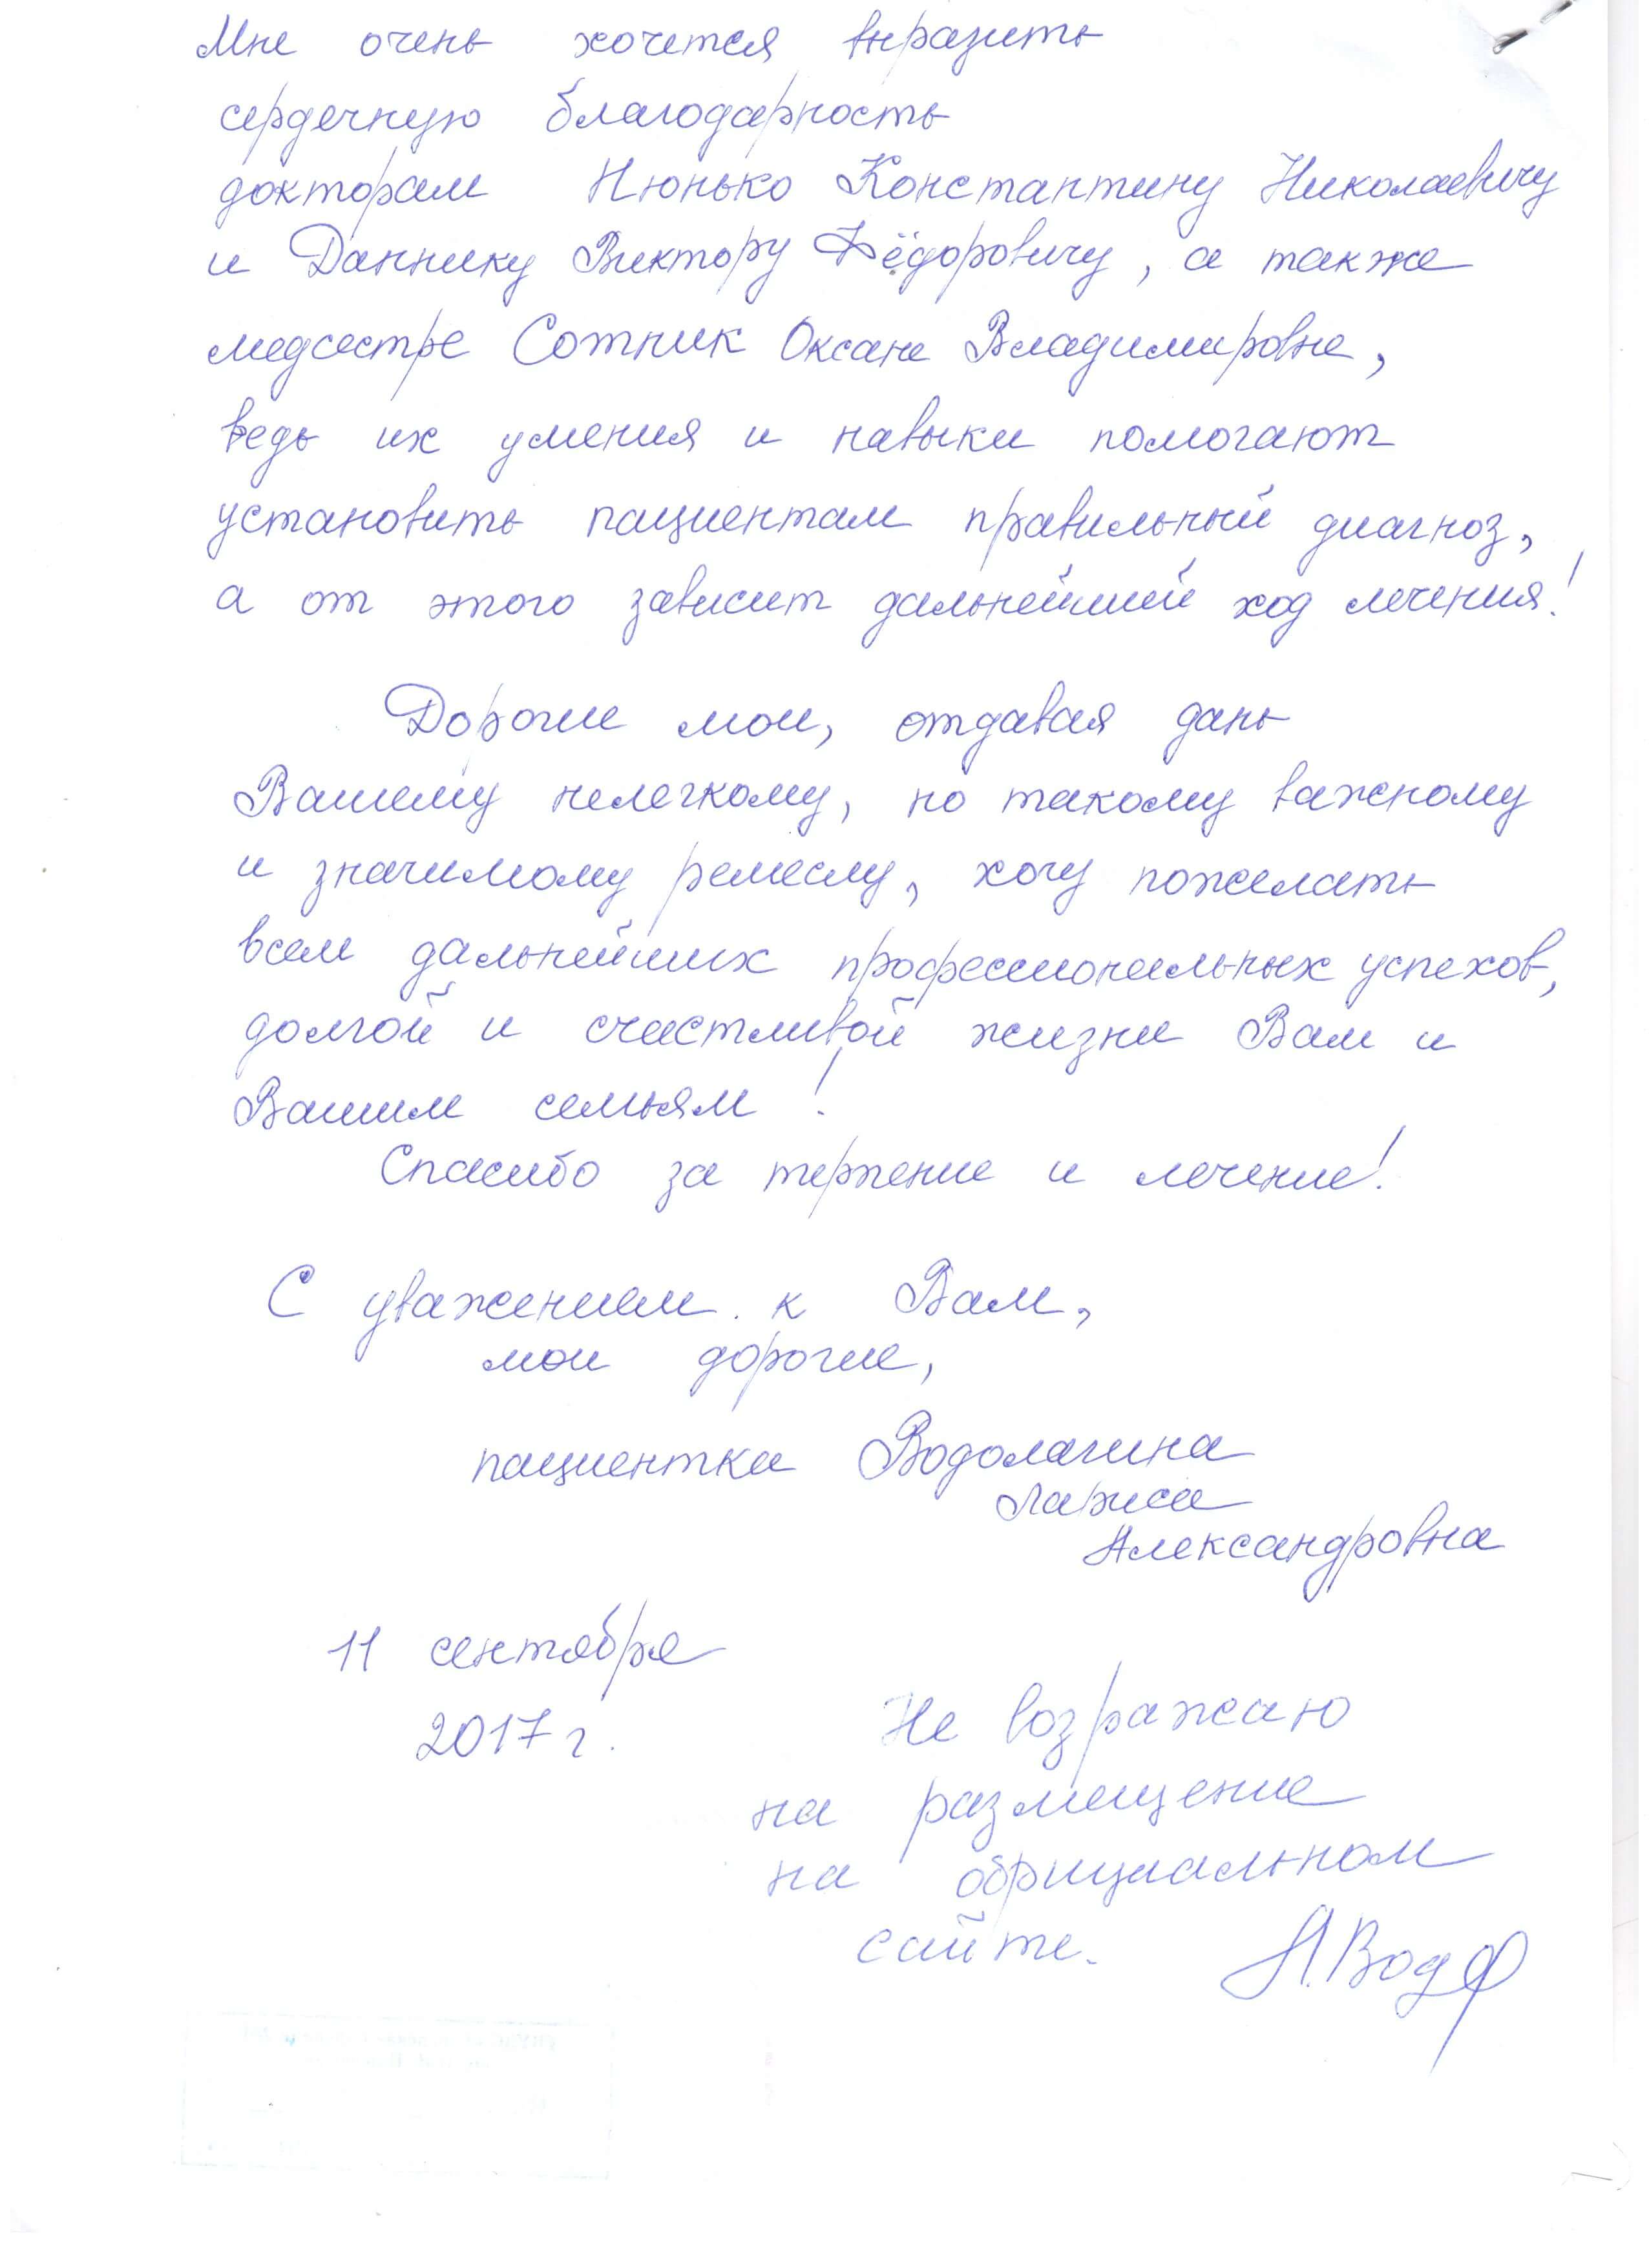 Мне очень хочется выразить
сердечную благодарность
докторам Нюнько Константину Николаевичу
и Даннику Виктору Фёдоровичу, а также
медсестре Сотник Оксане Владимировне,
ведь их умения и навыки помогают
установить пациентам правильный диагноз,
а от этого зависит дальнейший ход лечения!
Дорогие мои, отдавая дань
Вашему нелегкому, но такому важному
и значимому ремеслу, хочу пожелать
всем дальнейших профессиональных успехов,
долгой и счастливой жизни Вам и
Вашим семьям!
Спасибо за терпение и лечение!
С уважением к Вам,
мои дорогие,
пациентка Водолагина
Лариса
Александровна
11 сентября
2017 г.
Не возражаю
на размещение
на официальном
сайте. Л.Вод